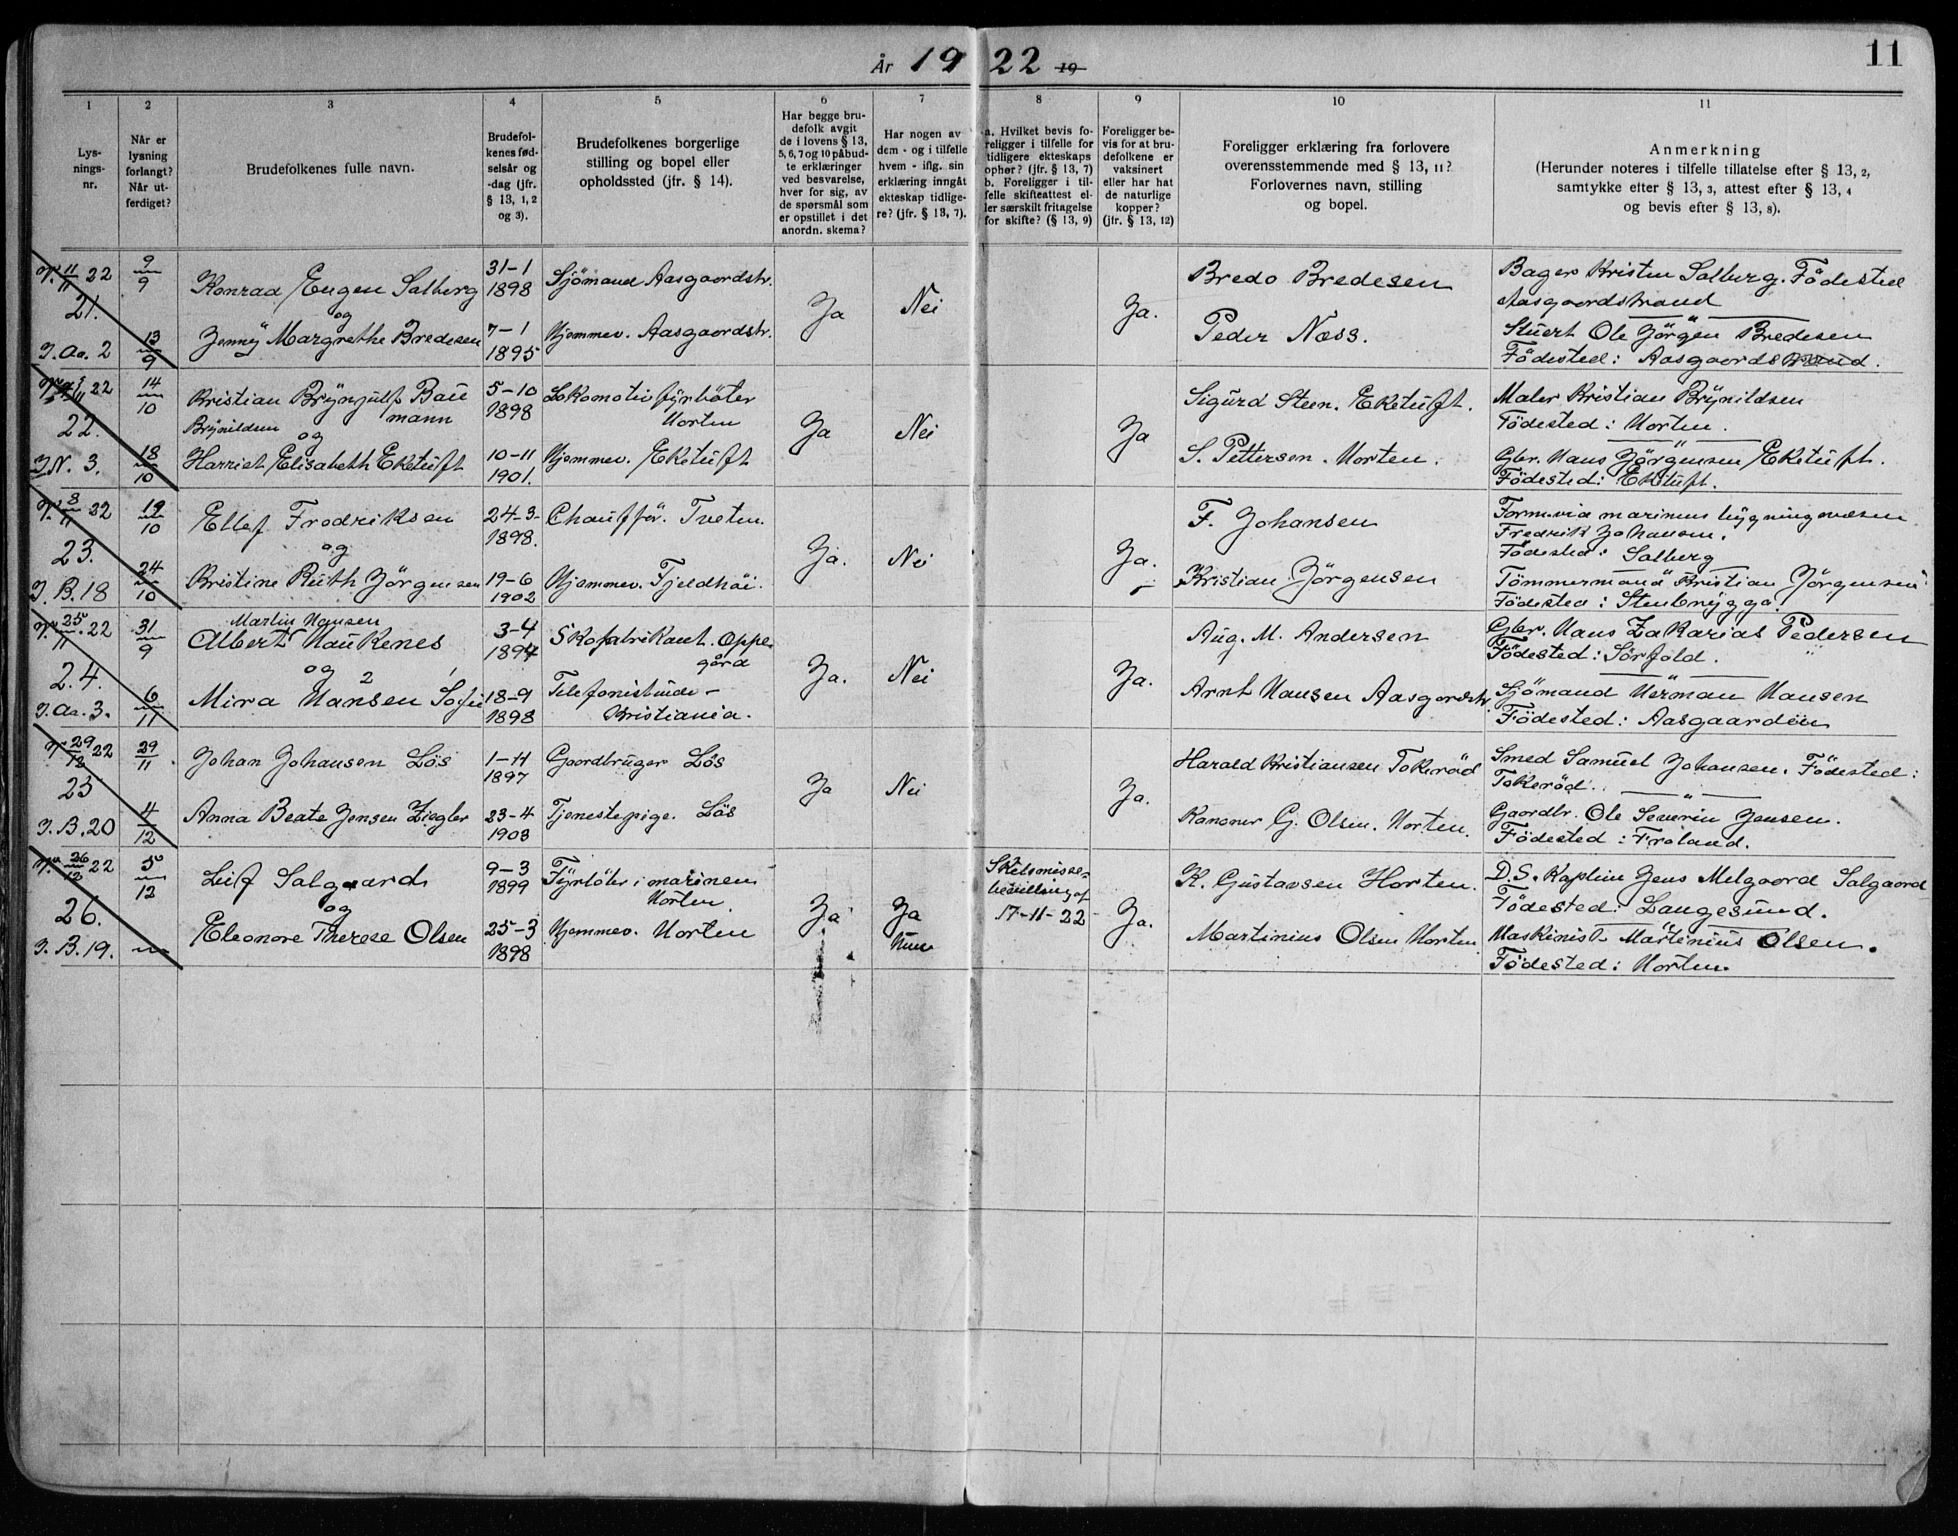 11
År 1922 19
1
2
3
4
5
6
7
8
9
10
11
Lysningsnr.
Når er lysning forlangt? Når utferdiget?
Brudefolkenes fulle navn.
Brudefolkenes fødselsår og -dag (jfr. § 13, 1, 2 og 3).
Brudefolkenes borgerlige stilling og bopel eller opholdssted (jfr. § 14).
Har begge brudefolk avgit de i lovens § 13, 5, 6, 7 og 10 påbudte erklæringer ved besvarelse, hver for sig, av de spørsmål som er opstillet i det anordn. skema?
Har nogen av dem - og i tilfelle hvem - iflg. sin erklæring inngåt ekteskap tidligere? (jfr. § 13, 7).
a. Hvilket bevis foreligger i tilfelle for tidligere ekteskaps ophør? (jfr. § 13, 7) b. Foreligger i tilfelle skifteattest eller særskilt fritagelse for skifte? (§ 13, 9)
Foreligger bevis for at brudefolkene er vaksinert eller har hat de naturlige kopper? (jfr. § 13, 12)
Foreligger erklæring fra forlovere overensstemmende med § 13, 11? Forlovernes navn, stilling og bopel.
Anmerkning (Herunder noteres i tilfelle tillatelse efter § 13, 2, samtykke efter § 13, 3, attest efter § 13, 4 og bevis efter § 13, 8).
V. 11/11 22
21.
J. Aa. 2
9/9
13/9
Konrad Eugen Salberg
og
Jenny Margrethe Bredesen
31-1
1898
7-1
1895
Sjömand Aasgaardstr.
Hjemmev. Aasgaardstr.
Ja
Nei
Ja.
Bredo Bredesen
Peder Næss.
Bager Kristen Salberg. Födested
Aasgaardstrand
Stuert Ole Jörgen Bredesen
Födested: Aasgaardstrand.
22
22.
J. N. 3.
14/10
18/10
Kristian Brynjulf Bau
mann
Brynildsen
og
Harriet Elisabeth Eketuft
5-10
1898
10-11
1901.
Lokomotivfyrböter
Horten
Hjemmev. Eketuft
Ja
Nei
Ja
Sigurd Steen. Eketuft.
S. Pettersen. Horten.
Maler Kristian Brynildsen
Födested: Horten.
Gbr. Hans Jörgensen Eketuft.
Födested: Eketuft.
V. 8/11 22
23.
J. B. 18
19/10
24/10
Ellef Fredriksen
og
Kristine Ruth Jörgensen
24-3-
1898.
19-6
1902
Chaufför. Tveten.
Hjemmev. Fjeldhöi.
Ja.
Nei
Ja.
F. Johansen
Kristian Jörgensen
Form. via marinens bygningsvæsen
Fredrik Johansen.
Födested: Salberg
Tömmermand Kristian Jörgensen
Födested: Stenbrygga.
V. 25/11. 22
24.
J. Aa. 3.
31/9
6/11
Martin Hansen
Albert Haukenes
og
2 1
Mira Hansen Sofie
3-4
1894
18-9
1898
Skofabrikant. Oppe
gård
Telefonistinde -
Kristiania.
Ja.
Nei
Ja.
Aug. M. Andersen
Arnt Hansen Aasgardstr.
Gbr. Hans Zakarias Pedersen
Födested: Sörfold.
Sjömand Herman Hansen
Födested: Aasgaarden
V. 29/12 22
25
J. B. 20
29/11.
4/12
Johan Johansen Lös
Anna Beate Jensen Ziegler
1-11
1897
23-4
1903
Gaardbruger Lös
Tjenestepige. Lös
Ja
Nei
Ja.
Harald Kristiansen Tokeröd
Kanoner G. Olsen. Horten.
Smed Samuel Johansen. Födested:
Tokeröd.
Gaardbr. Ole Severin Jensen.
Födested: Froland.
V. 26/12 22
26.
J. B. 19.
5/12
Leif Salgaard
og
Eleonore Therese Olsen
9-3
1899
25-3
1898
Fyrböter i marinen
Horten.
Hjemmev. Horten
Ja
Ja
Hun
Skilsmisse-
bevilling af
17-11-22
Ja.
K. Gustavsen Horten.
Martinius Olsen Horten
D.S. Kaptein Jens Melgaard Salgaard
Födested: Langesund.
Maskinist Martinius Olsen.
Födested: Horten.